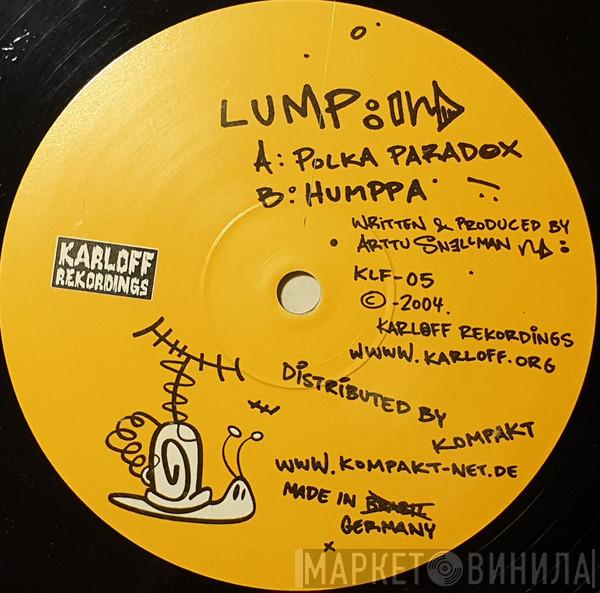 LUMP:
A: POLKA PARADOX
B: HUMPPA
WRITTEN & PRODUCED BY
ARTTU SNELLMAN
KLF-05
© -2004.
KARLOFF REKORDINGS
WWWW.KARLOFF.ORG
KARLOFF
REKORDINGS
DISTRIBUTED BY
KOMPAKT
WWW.KOMPAKT-NET.DE
MADE IN BRASIL
GERMANY
МАРКЕТ ВИНИЛА